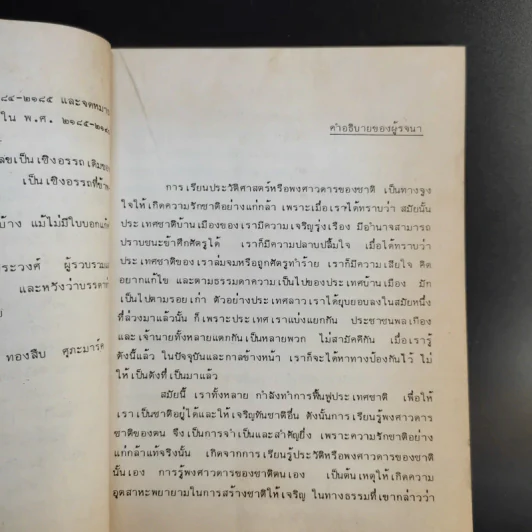 ๘๔-๒๑๘๕ และจดหมาย
ใน พ.ศ. ๒๑๘๕-๒๑๘
ลขเป็นเชิงอรรถเดิมของ
เป็นเชิงอรรถที่ข้า
บ้าง แม้ไม่มีใบบอกแก้
ระวงศ์ ผู้รวบรวมแล
และหวังว่าบรรดาท่
ทองสืบ ศุภะมาร์ค
คำอธิบายของผู้รจนา
การเรียนประวัติศาสตร์หรือพงศาวดารของชาติ เป็นทางจูง
ใจให้เกิดความรักชาติอย่างแก่กล้า เพราะเมื่อเราได้ทราบว่า สมัยนั้น
ประเทศชาติบ้านเมืองของเรามีความเจริญรุ่งเรือง มีอำนาจสามารถ
ปราบชนะข้าศึกศัตรูได้ เราก็มีความปลาบปลื้มใจ เมื่อได้ทราบว่า
ประเทศชาติของเราล่มจมหรือถูกศัตรูทำร้าย เราก็มีความเสียใจ คิด
อยากแก้ไข และตามธรรมดาความเป็นไปของประเทศบ้านเมือง มัก
เป็นไปตามรอยเก่า ตัวอย่างประเทศลาวเราได้ยุบยอบลงในสมัยหนึ่ง
ที่ล่วงมาแล้วนั้น ก็เพราะประเทศเราแบ่งแยกกัน ประชาชนพลเมือง
และเจ้านายทั้งหลายแตกกันเป็นหลายพวก ไม่สามัคคีกัน เมื่อเรารู้
ดังนี้แล้ว ในปัจจุบันและกาลข้างหน้า เราก็จะได้หาทางป้องกันไว้ ไม่
ให้เป็นดังที่เป็นมาแล้ว
สมัยนี้ เราทั้งหลาย กำลังทำการฟื้นฟูประเทศชาติ เพื่อให้
เราเป็นชาติอยู่ได้และให้เจริญทันชาติอื่น ดังนั้นการเรียนรู้พงศาวดาร
ชาติของตน จึงเป็นการจำเป็นและสำคัญยิ่ง เพราะความรักชาติอย่าง
แก่กล้าแท้จริงนั้น เกิดจากการเรียนรู้ประวัติหรือพงศาวดารของชาติ
นั้นเอง การรู้พงศาวดารของชาติตนเอง เป็นต้นเหตุให้เกิดความ
อุตสาหะพยายามในการสร้างชาติให้เจริญ ในทางธรรมที่เขากล่าวว่า